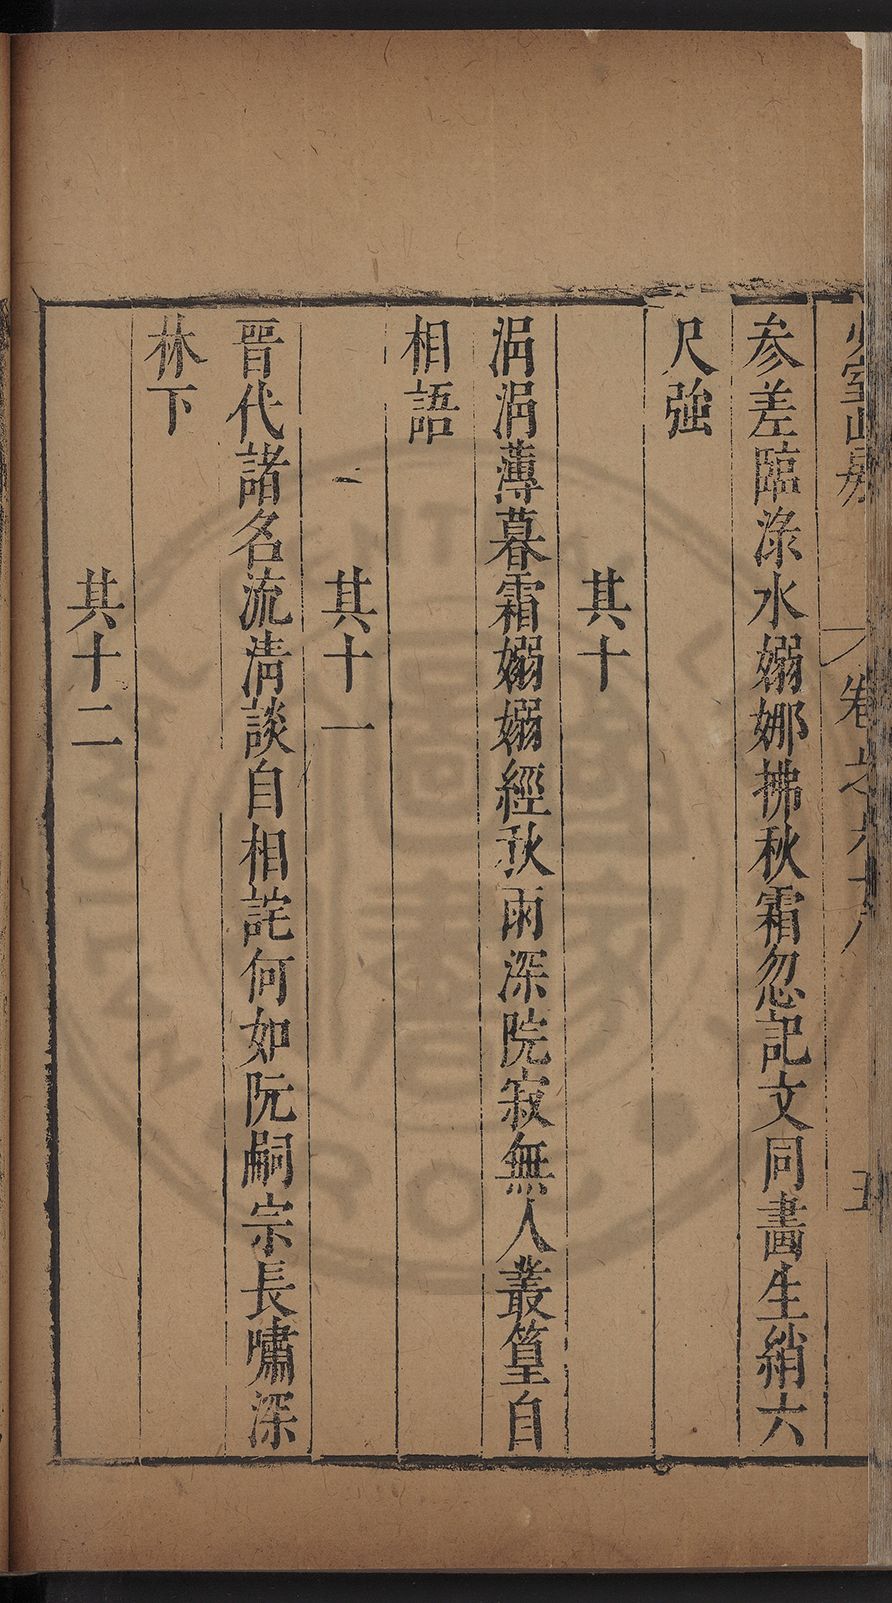 少室山房
卷之六十八
五
參差臨淥水嫋娜拂秋霜忽記文同畫生綃六
尺強
其十
涓涓薄暮霜嫋嫋經秋雨深院寂無人叢篁自
相語
其十一
晉代諸名流清談自相詫何如阮嗣宗長嘯深
林下
其十二